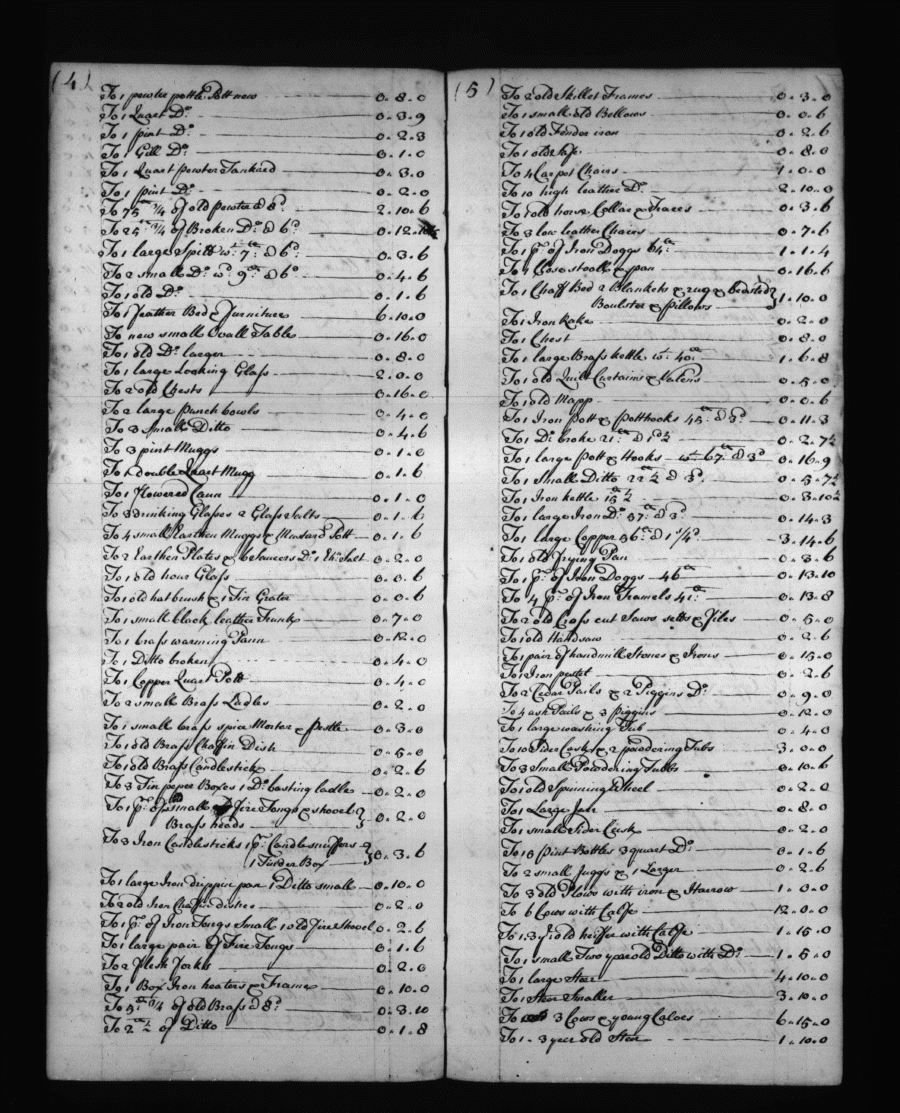 (4)
To 1 pewter pottle Pott new 0.8.0
To 1 Quart Do. 0.3.9
To 1 pint Do. 0.2.3
To 1 Gill Do. 0.1.0
To 1 Quart pewter Tankerd 0.3.0
To 1 pint Do. 0.2.0
To 75 lb 3/4 of old pewter @ 8d. 2.10.6
To 25 lb 1/4 of Broken Do. @ 6d. 0.12.
To 1 large Spitt wt. 7 lb @ 6d. 0.3.6
To 2 small Do. wt. 9 lb @ 6d 0.4.6
To 1 old Do. 0.1.6
To 1 feather Bed & furniture 6.10.0
To new small Ovall Table 0.16.0
To 1 old Do. larger 0.8.0
To 1 large Looking Glass 2.0.0
To 2 old Chests 0.16.0
To 2 large punch bowls 0.4.0
To 3 Small Ditto 0.4.6
To 3 pint Muggs 0.1.0
To 1 double Quart Mugg 0.1.6
To 1 flowered Cann 0.1.0
To 3 drinking Glasses 2 Glass Salts 0.1.6
To 4 small Earthen Muggs & Mustard Pott 0.1.6
To 2 Earthen Plates & 6 Saucers Do. 1 Salt 0.2.0
To 1 old hour Glass 0.0.6
To 1 old hat brush & 1 Tin Grater 0.0.6
To 1 small black leather Trunk 0.7.0
To 1 brass warming Pann 0.12.0
To 1 Ditto broken 0.4.0
To 1 Copper Quart Pott 0.4.0
To 2 small Brass Ladles 0.2.0
To 1 small brass spice Morter & pestle 0.3.0
To 1 old Brass Chaffin Dish 0.5.0
To 1 old Brass Candlestick 0.2.6
To 3 Tin peper Boxes 1 Do. basting ladle 0.2.0
To 1 pr. of small fire Tongs & shovel
Brass heads 0.2.0
To 3 Iron Candlesticks 1 pr. Candlesnuffers
1 Tinder Box 0.3.6
To 1 large Iron drippin pan 1 Ditto small 0.10.0
To 2 old Iron Chaffin dishes 0.2.0
To 1 pr. of Iron Tongs Small 1 old fire Shovel 0.2.6
To 1 large pair of Fire Tongs 0.1.6
To 2 Flesh forks 0.2.0
To 1 Box Iron heaters & Frames 0.10.0
To 5 lb 3/4 of old Brass @ 8d. 0.3.10
To 2 lb 1/2 of Ditto 0.1.8
(5)
To 2 old Skillet Frames 0.3.0
To 1 small old Bellows 0.0.6
To 1 old Fender iron 0.2.6
To 1 old Safe 0.8.0
To 4 Carpot Chairs 1.0.0
To 10 high leather Do. 2.10.0
To 1 old horse Collar & Traces 0.3.6
To 3 low leather Chairs 0.7.6
To 1 pr. of Iron Doggs 64 lb 1.1.4
To 1 Close stoole & pan 0.16.6
To 1 Chaff Bed 2 Blankets & rug & bedsted
Boulster & pillows 1.10.0
To 1 Iron Rake 0.2.0
To 1 Chest 0.8.0
To 1 large Brass kettle wt. 40 lb 1.6.8
To 1 old Quilt Curtains & Valens 0.5.0
To 1 old Mapp 0.0.6
To 1 Iron Pott & Potthooks 45 lb @ 3d. 0.11.3
To 1 Do. broke 21 lb @ 1d 1/2 0.2.7 1/2
To 1 large Pott & Hooks wt. 67 lb @ 3d 0.16.9
To 1 Smaller Ditto 22 lb 1/2 @ 3d. 0.5.7 1/2
To 1 Iron kettle 15 lb 1/2 0.3.10 1/2
To 1 large Iron Do. 57 lb @ 3d. 0.14.3
To 1 large Copper 56 lb @ 1/4d. 3.14.6
To 1 old frying Pan 0.3.6
To 1 pr. of Iron Doggs 46 lb 0.13.10
To 4 pr. of Iron Tramels 41 lb 0.13.8
To 2 old Cross cut Saws setts & Files 0.5.0
To 1 old Handsaw 0.2.6
To 1 pair of handmill Stones & Irons 0.15.0
To 1 Iron pestel 0.2.6
To 2 Cedar Pails & 2 Piggins Do. 0.9.0
To 4 ash Pails & 3 piggins 0.12.0
To 1 large washing Tub 0.4.0
To 10 Sider Casks & 2 powdering Tubs 3.0.0
To 3 Small Powdering Tubbs 0.10.6
To 1 old Spinning Wheel 0.2.0
To 1 Large Jarr 0.8.0
To 1 small Sider Cask 0.2.0
To 18 Pint Bottles 3 quart Do. 0.1.6
To 2 small Juggs & 1 Larger 0.2.6
To 3 old Plows with iron & Harrow 1.0.0
To 6 Cows with Calfe 12.0.0
To 1-3 yr old heiffer with Calfe 1.15.0
To 1 small Two year old Ditto with Do. 1.5.0
To 1 large Steer 4.10.0
To 1 Steer Smaller 3.10.0
To 3 Cows & young Calves 6.15.0
To 1-3 year old Steer 1.10.0